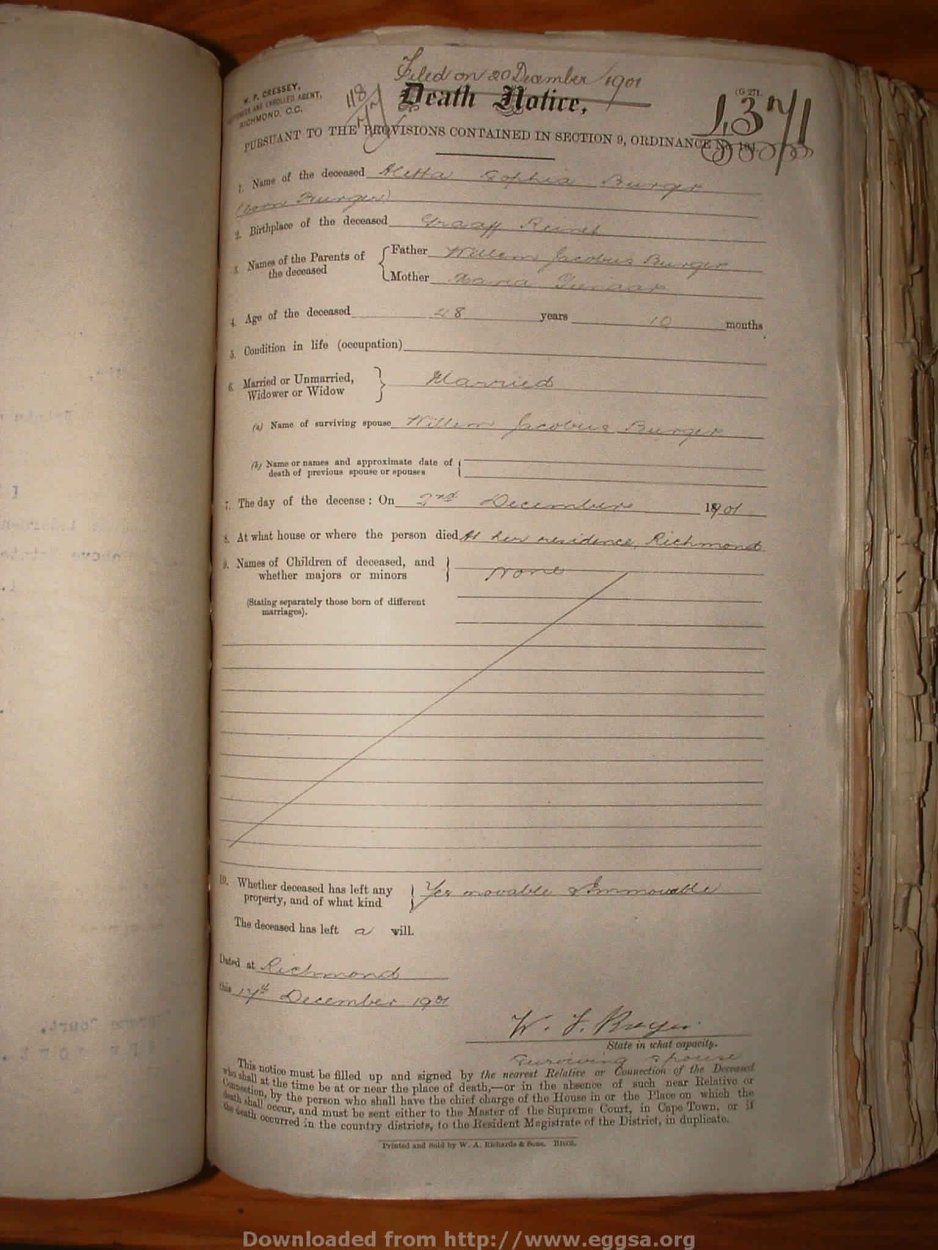 Filed on 20 December 1901
W. P. CRESSEY,
AND ENROLLED AGENT,
RICHMOND, C.C.
118
17
Death Notice,
(G 271.
1371
PURSUANT TO THE PROVISIONS CONTAINED IN SECTION 9, ORDINANCE No. 104.
1. Name of the deceased Aletta Sophia Burger
(born Burger)
2. Birthplace of the deceased Graaff Reinet
3. Names of the Parents of the deceased { Father Willem Jacobus Burger
Mother Maria Pienaar
4. Age of the deceased 48 years 10 months
5. Condition in life (occupation)
6. Married or Unmarried, Widower or Widow } Married
(a) Name of surviving spouse Willem Jacobus Burger
(b) Name or names and approximate date of death of previous spouse or spouses {
7. The day of the decease: On 2nd December 1901
8. At what house or where the person died At her residence, Richmond
9. Names of Children of deceased, and whether majors or minors } none
(Stating separately those born of different marriages).
10. Whether deceased has left any property, and of what kind } Yes movable & Immovable
The deceased has left a will.
Dated at Richmond
this 17th December 1901
W. J. Burger
State in what capacity.
Surviving Spouse
This notice must be filled up and signed by the nearest Relative or Connection of the Deceased
who shall at the time be at or near the place of death,—or in the absence of such near Relative or
Connection, by the person who shall have the chief charge of the House in or the Place on which the
death shall occur, and must be sent either to the Master of the Supreme Court, in Cape Town, or if
the death occurred in the country districts, to the Resident Magistrate of the District, in duplicate.
Printed and Sold by W. A. Richards & Sons.
Downloaded from http://www.eggsa.org